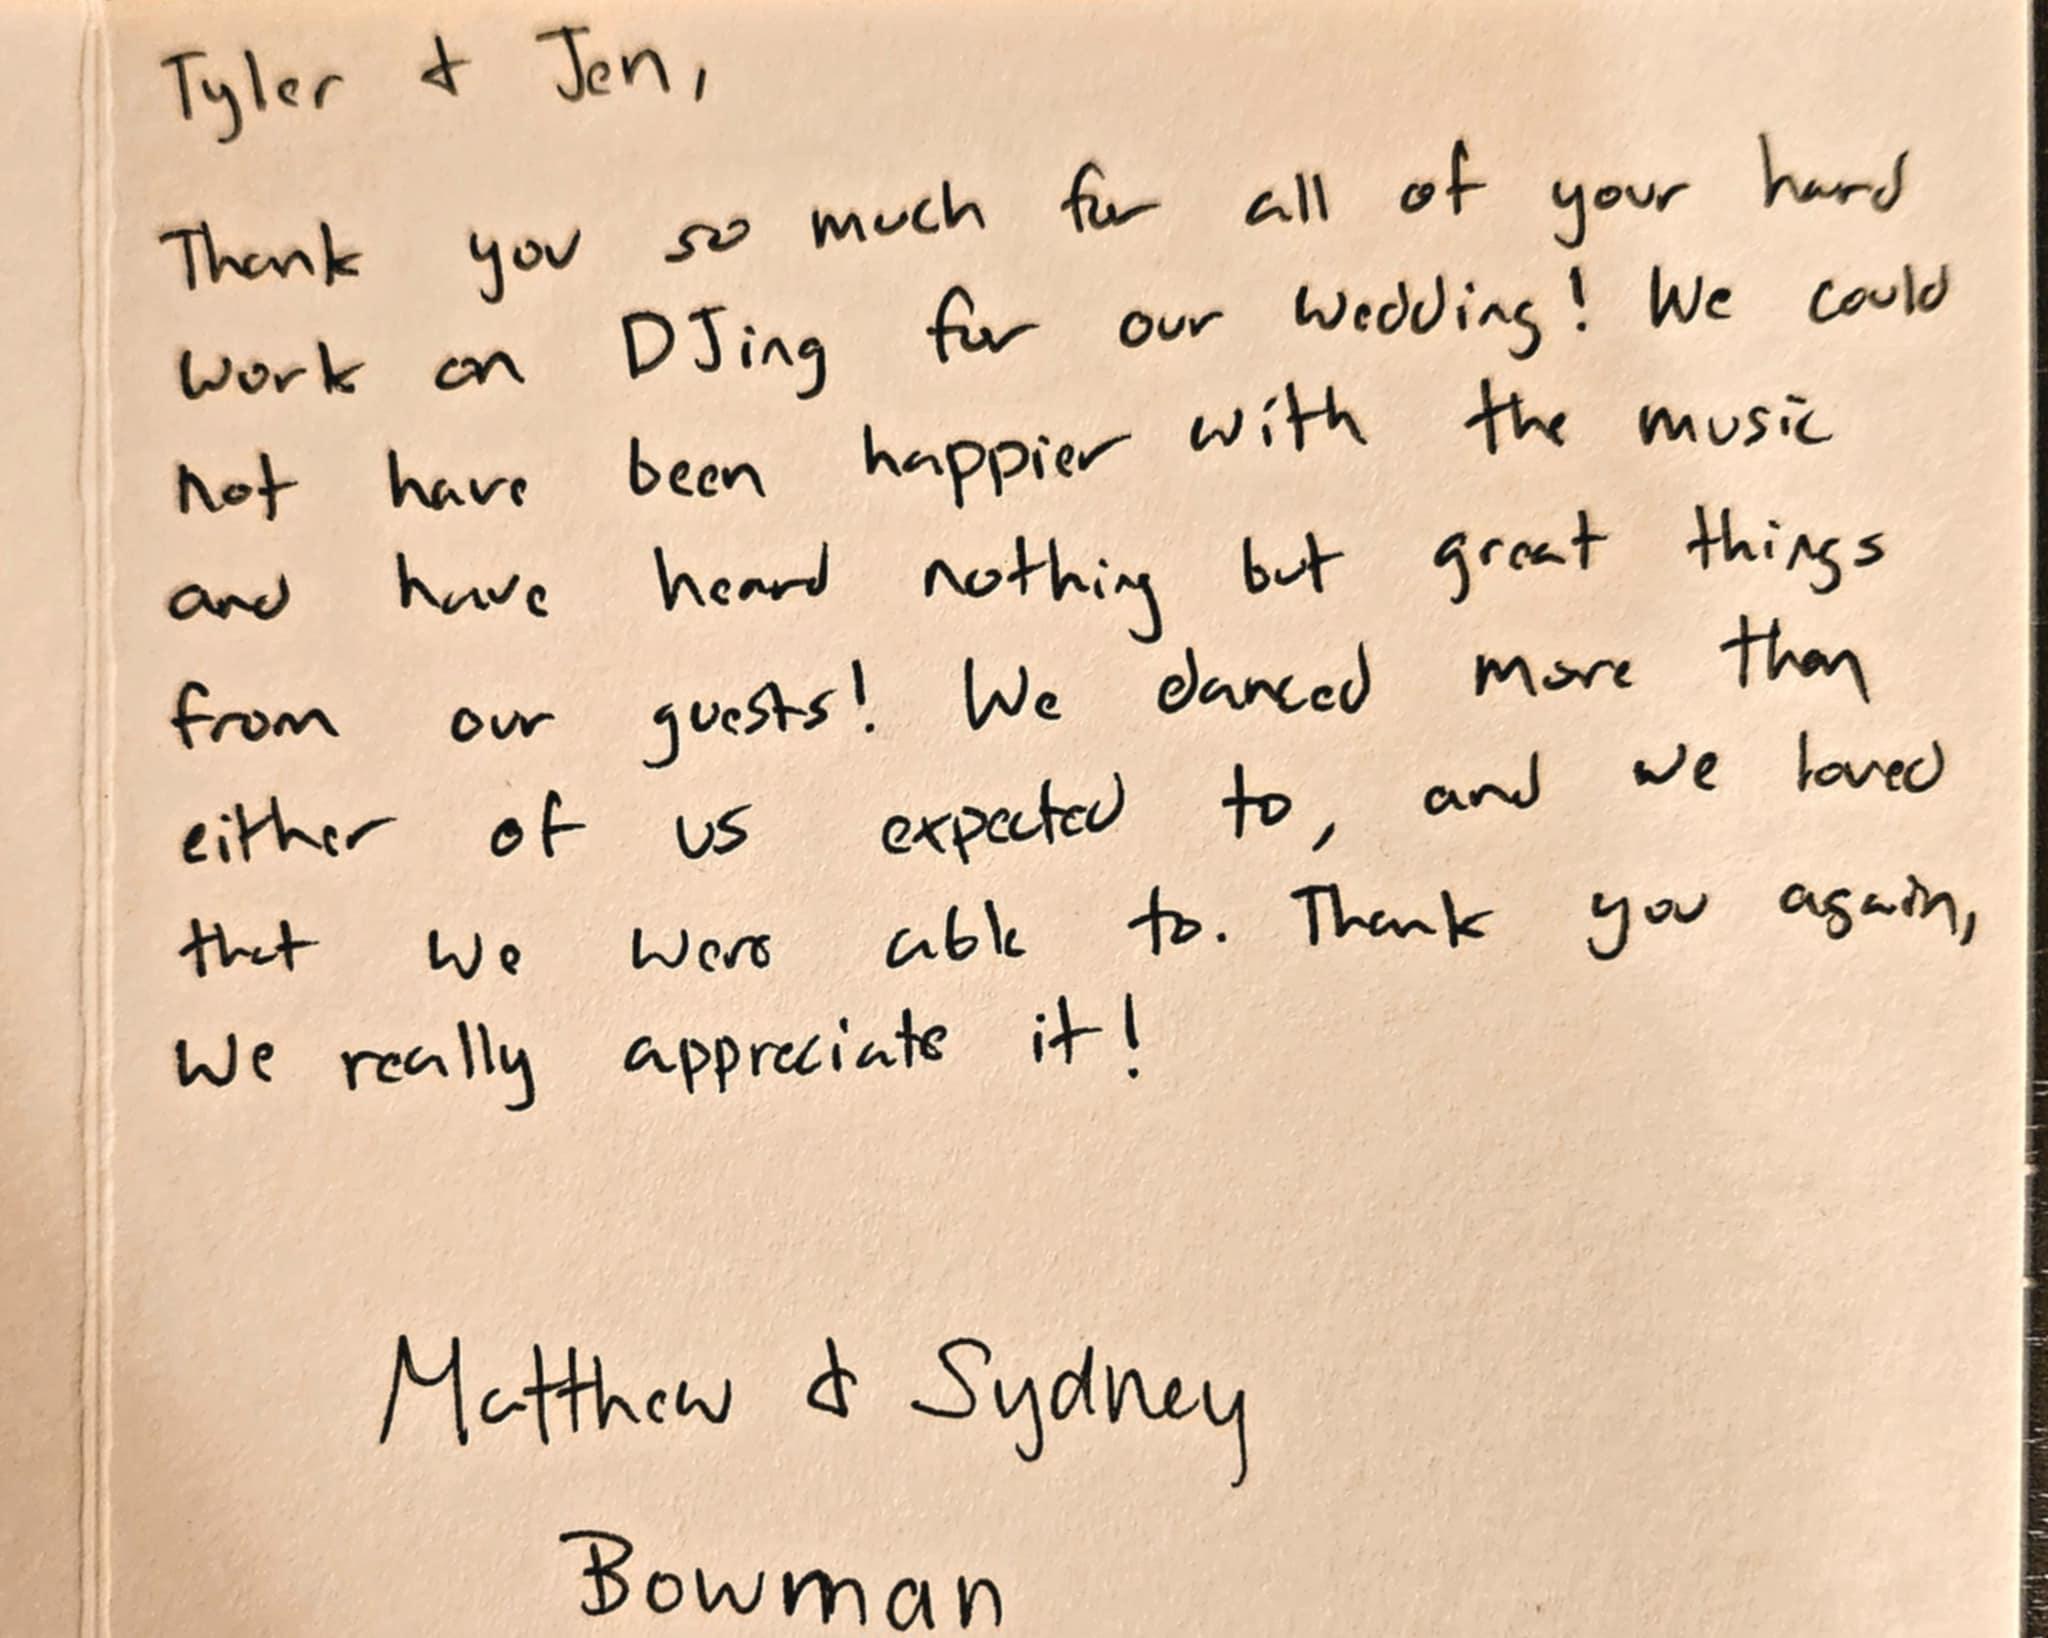 Tyler & Jen,
Thank you so much for all of your hard
work on DJing for our wedding! We could
not have been happier with the music
and have heard nothing but great things
from our guests! We danced more than
either of us expected to, and we loved
that we were able to. Thank you again,
We really appreciate it!
Matthew & Sydney
Bowman